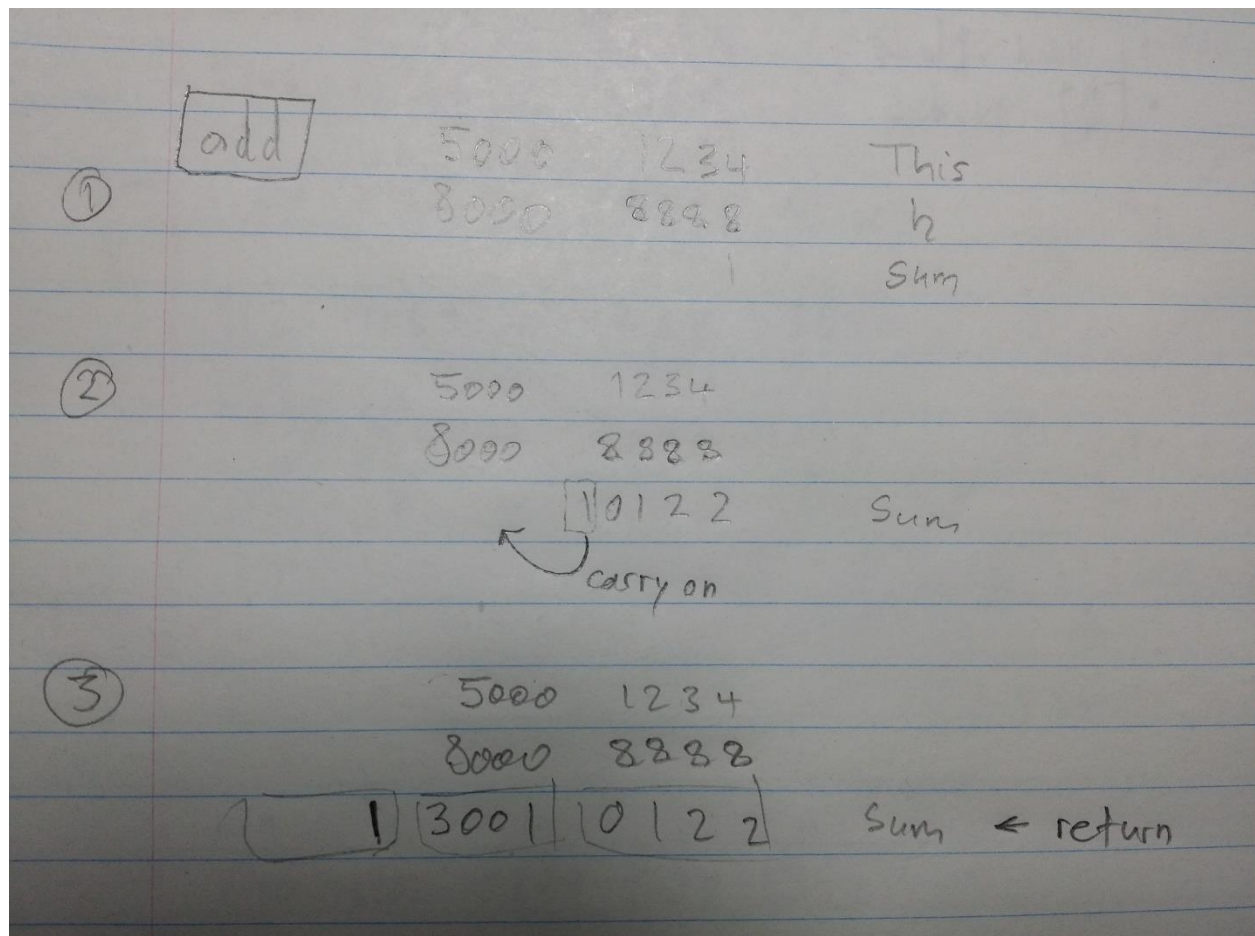 add 5000 1234 This
① 8000 8888 h
1 Sum
② 5000 1234
8000 8888
10122 Sum
carry on
③ 5000 1234
8000 8888
1 3001 0122 Sum ← return